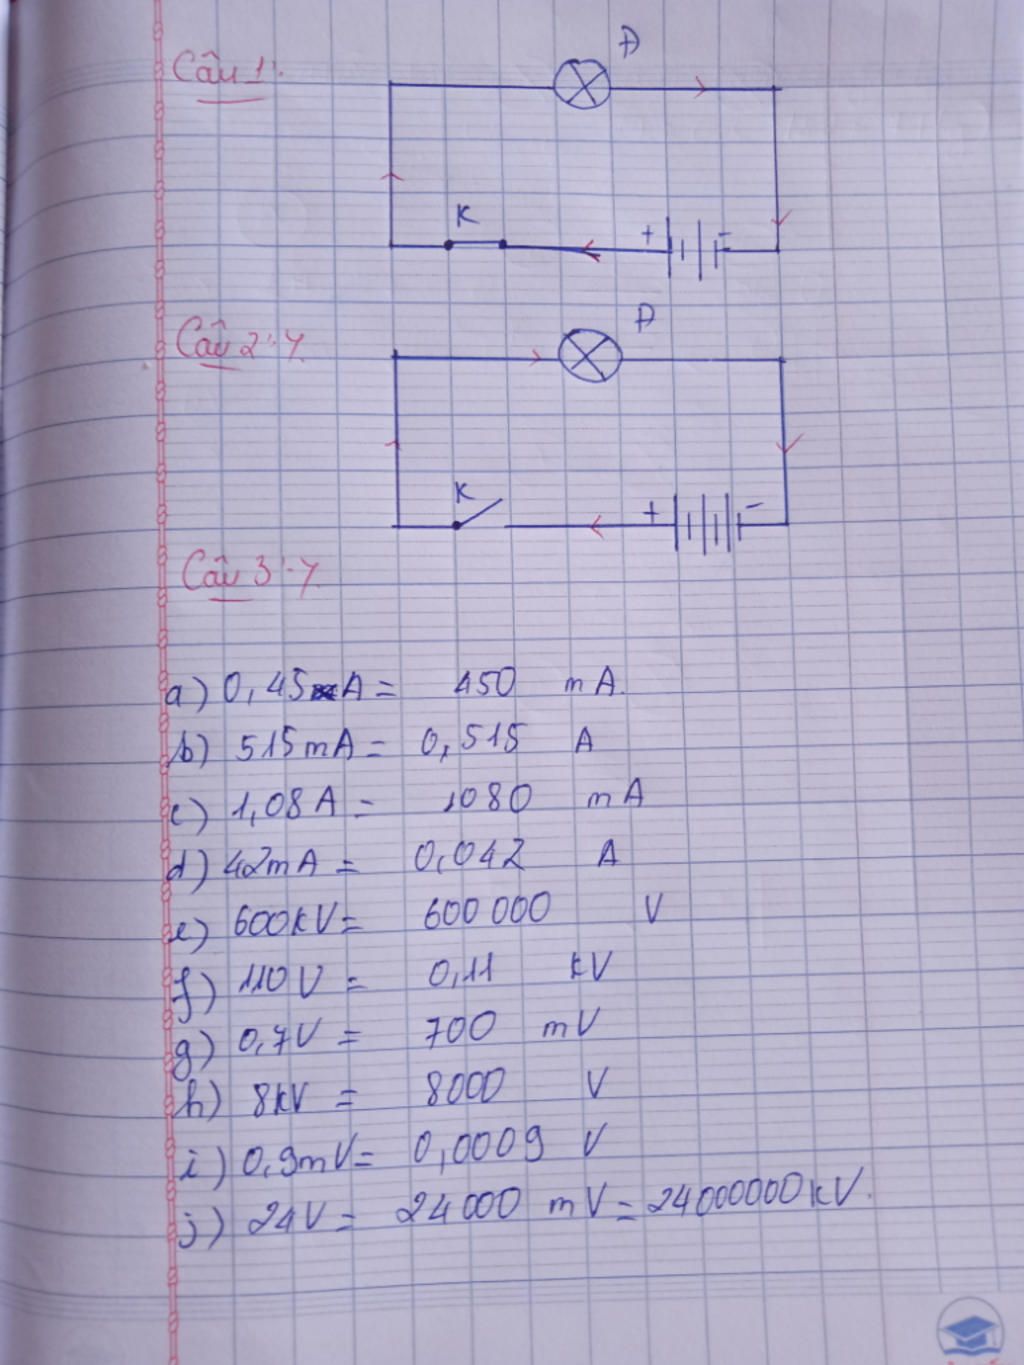 Câu 1:
Đ
K
+ -
Câu 2:
Đ
K
+ -
Câu 3:
a) 0,45 A = 450 mA.
b) 515mA = 0,515 A
c) 1,08A = 1080 mA
d) 42mA = 0,042 A
e) 600kV = 600 000 V
f) 110V = 0,11 kV
g) 0,7V = 700 mV
h) 8kV = 8000 V
i) 0,9mV = 0,0009 V
j) 24V = 24000 mV = 24000000kV.